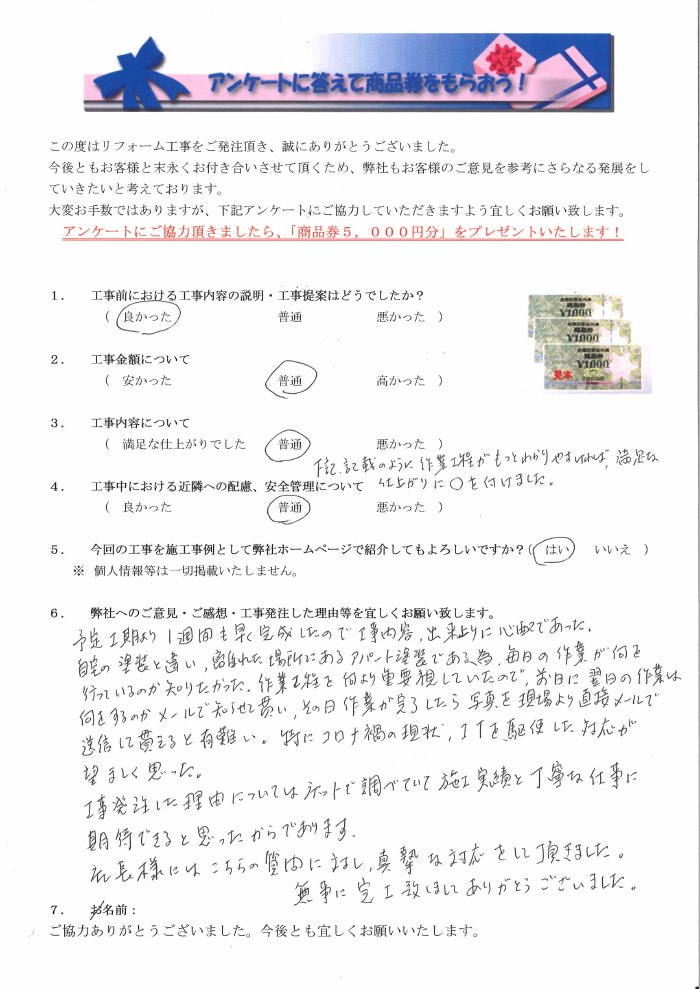 アンケートに答えて商品券をもらおう！
この度はリフォーム工事をご発注頂き、誠にありがとうございました。
今後ともお客様と末永くお付き合いさせて頂くため、弊社もお客様のご意見を参考にさらなる発展をし
ていきたいと考えております。
大変お手数ではありますが、下記アンケートにご協力していただきますよう宜しくお願い致します。
アンケートにご協力頂きましたら、「商品券５，０００円分」をプレゼントいたします！
１． 工事前における工事内容の説明・工事提案はどうでしたか？
（ 良かった 普通 悪かった ）
全国百貨店共通
商品券
¥1,000
見本
２． 工事金額について
（ 安かった 普通 高かった ）
３． 工事内容について
（ 満足な仕上がりでした 普通 悪かった ）
下記、記載のように作業工程がもっとわかりやすければ、満足な
仕上がりに○を付けました。
４． 工事中における近隣への配慮、安全管理について
（ 良かった 普通 悪かった ）
５． 今回の工事を施工事例として弊社ホームページで紹介してもよろしいですか？（ はい いいえ ）
※ 個人情報等は一切掲載いたしません。
６． 弊社へのご意見・ご感想・工事発注した理由等を宜しくお願い致します。
予定工期より1週間も早く完成したので工事内容、出来上りに心配であった。
自宅の塗装と違い、離れた場所にあるアパート塗装である為、毎日の作業が何を
行っているのか知りたかった。作業工程を何より重要視していたので、前日に翌日の作業は
何をするのかメールで知らせて貰い、その日作業が完了したら写真を現場より直接メールで
送信して貰えると有難い。特にコロナ禍の現状、ITを駆使した対応が
望ましく思った。
工事発注した理由についてはネットで調べていて施工実績と丁寧な仕事に
期待できると思ったからであります。
社長様にはこちらの質問に対し、真摯な対応をして頂きました。
無事に完工致しましてありがとうございました。
７． お名前：
ご協力ありがとうございました。今後とも宜しくお願いいたします。